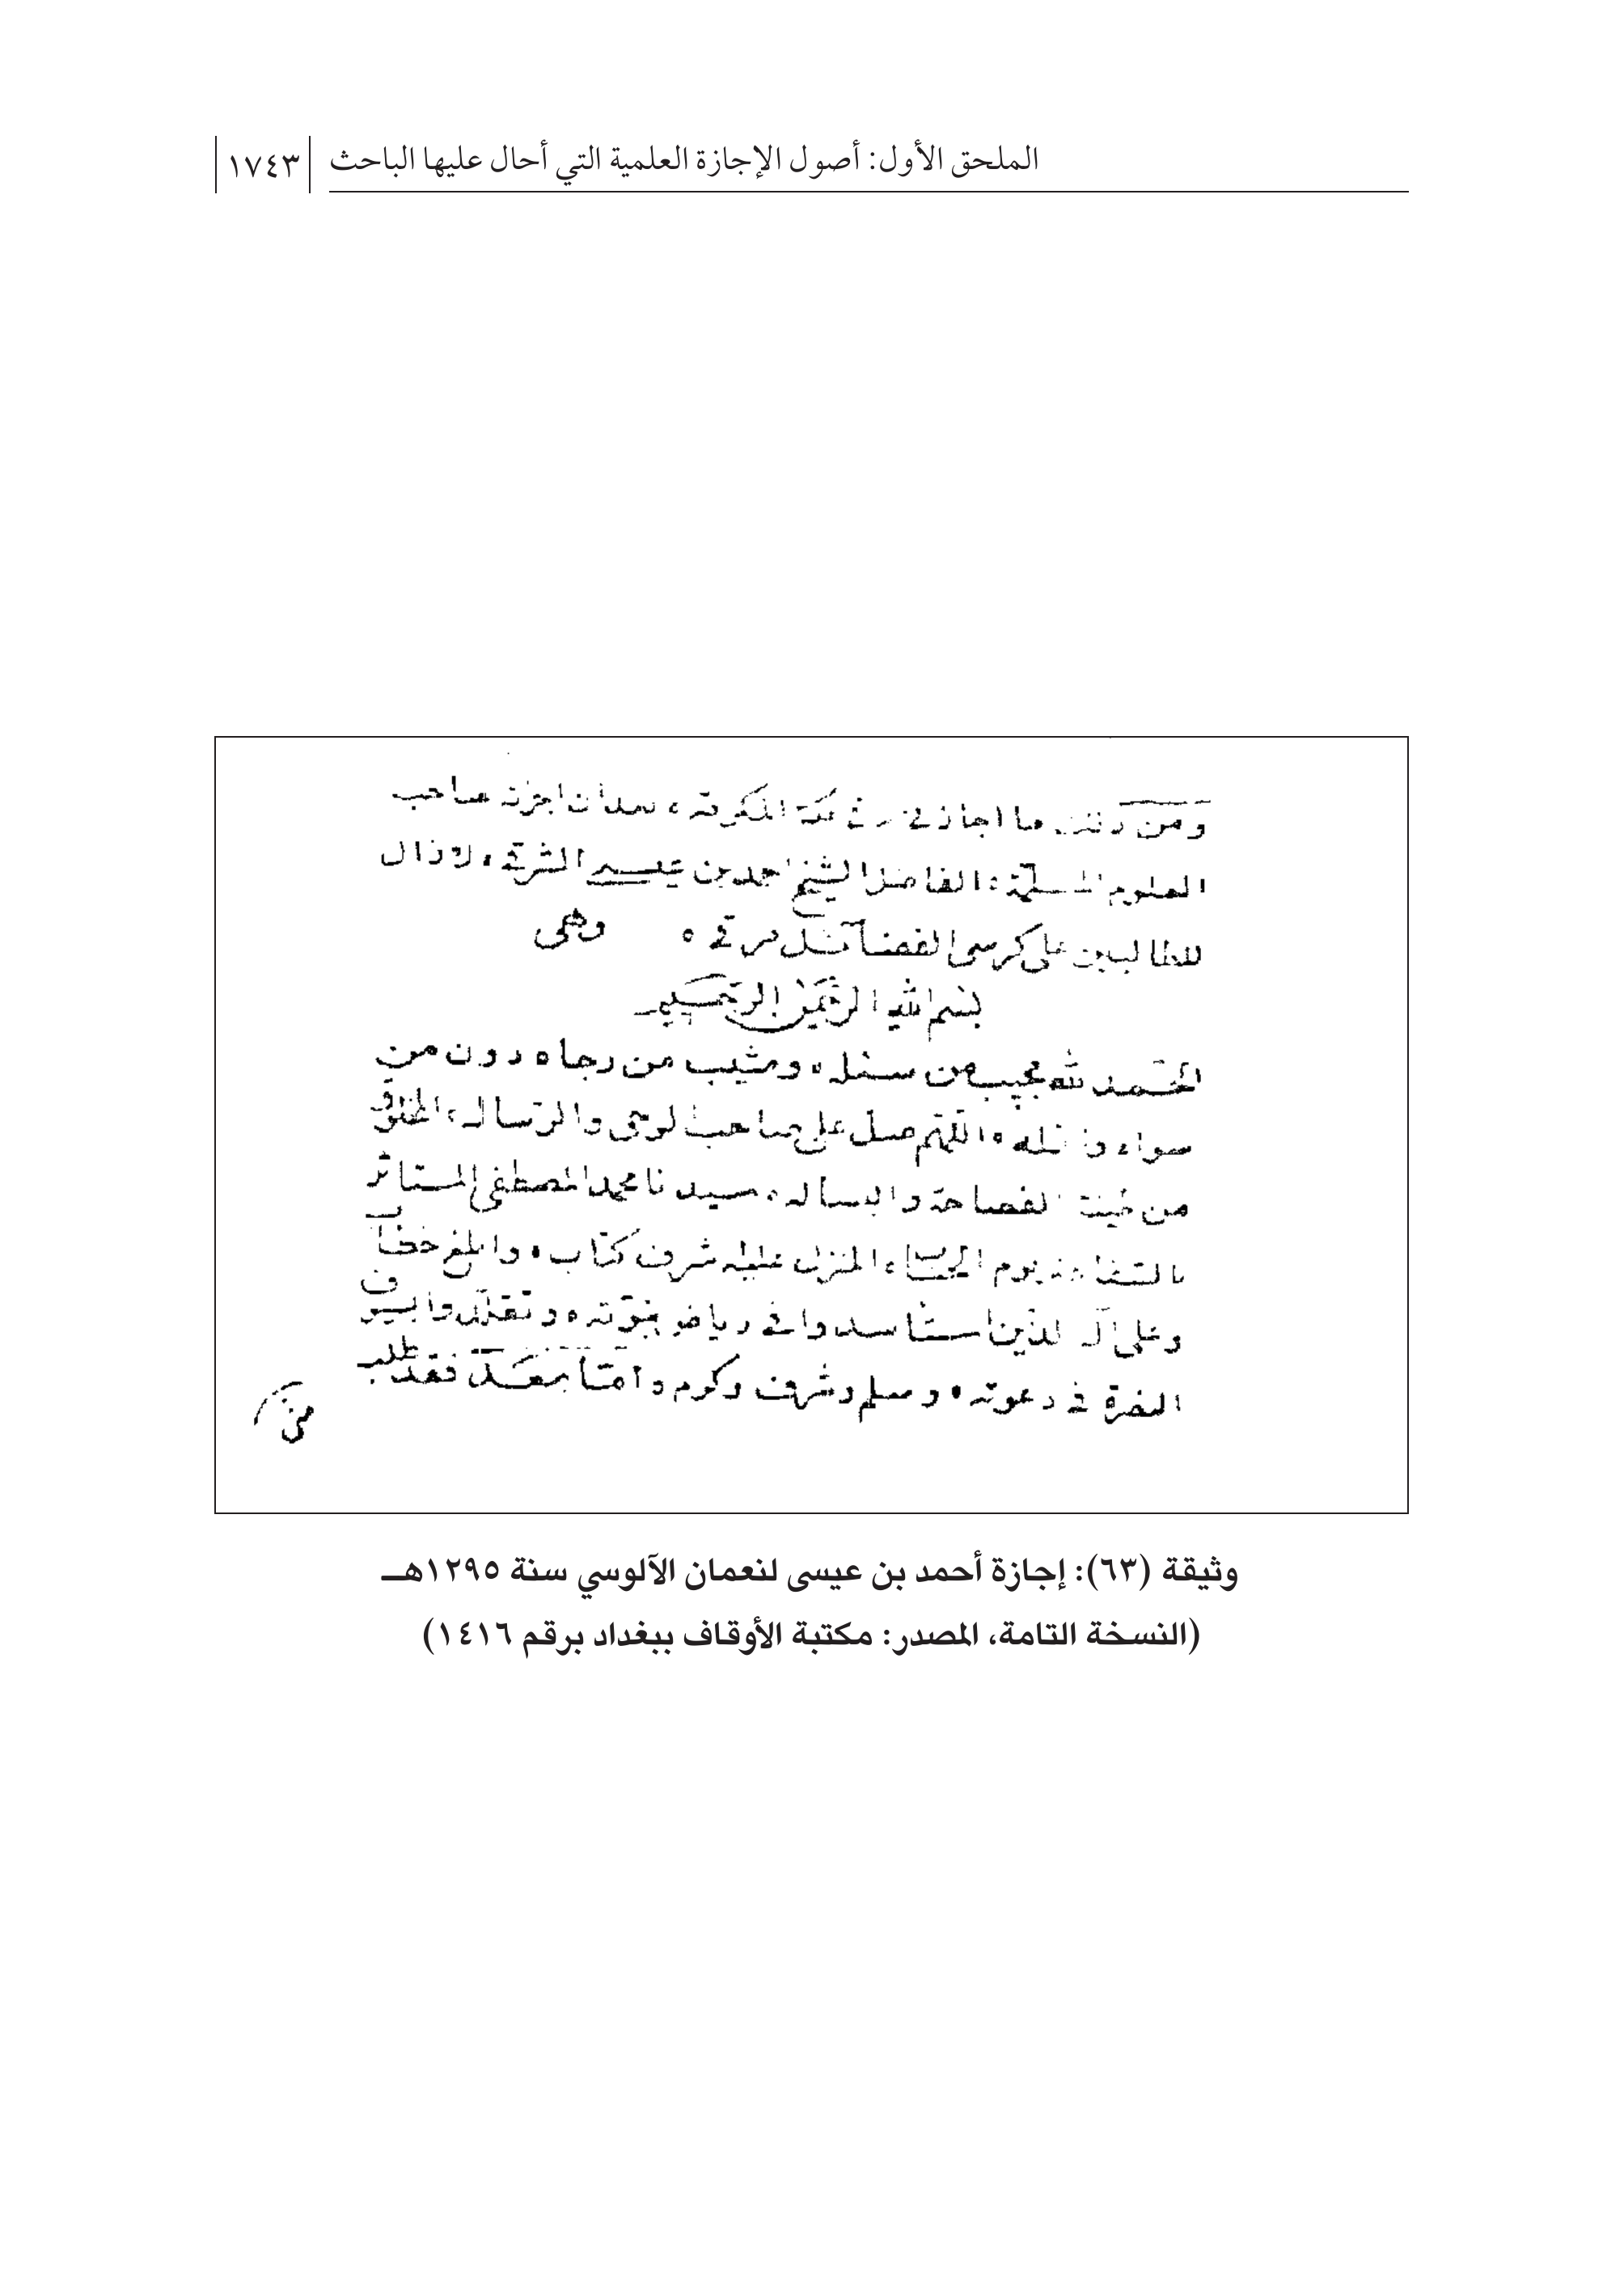 الملحق الأول: أصول الإجازة العلمية التي أحال عليها الباحث ١٧٤٣
ومن ذلك ما اجازني به في مكة المكرمة، بعد ان اجزته صاحب
العلوم الفاضل الشيخ احمد بن عيسى الشرقي، لا زال
للطالبين على كرسي الفضائل مرتقى ٥ وهى
بسم الله الرحمن الرحيم
الحمد لله مجيب من سئله، ومثيب من رجاه دون من
سواه ٥ اللهم صل على صاحب الوحى والرساله، المخلوق
من طينت الفصاحة والبساله، سيدنا محمد المصطفى المستاثر
بالشفاعة يوم الحساب، المنزل عليه شرف كتاب، وابلغ خطاب
وعلى آله الذين استأسدوا في رياض نبوته ٥ وتقلدوا سيوف
النصرة في دعوته، وسلم وشرف وكرم ٥ اما بعد فقد طلب
منى
وثيقة (٦٣): إجازة أحمد بن عيسى لنعمان الآلوسي سنة ١٢٩٥هـ
(النسخة التامة، المصدر: مكتبة الأوقاف ببغداد برقم ١٤١٦)